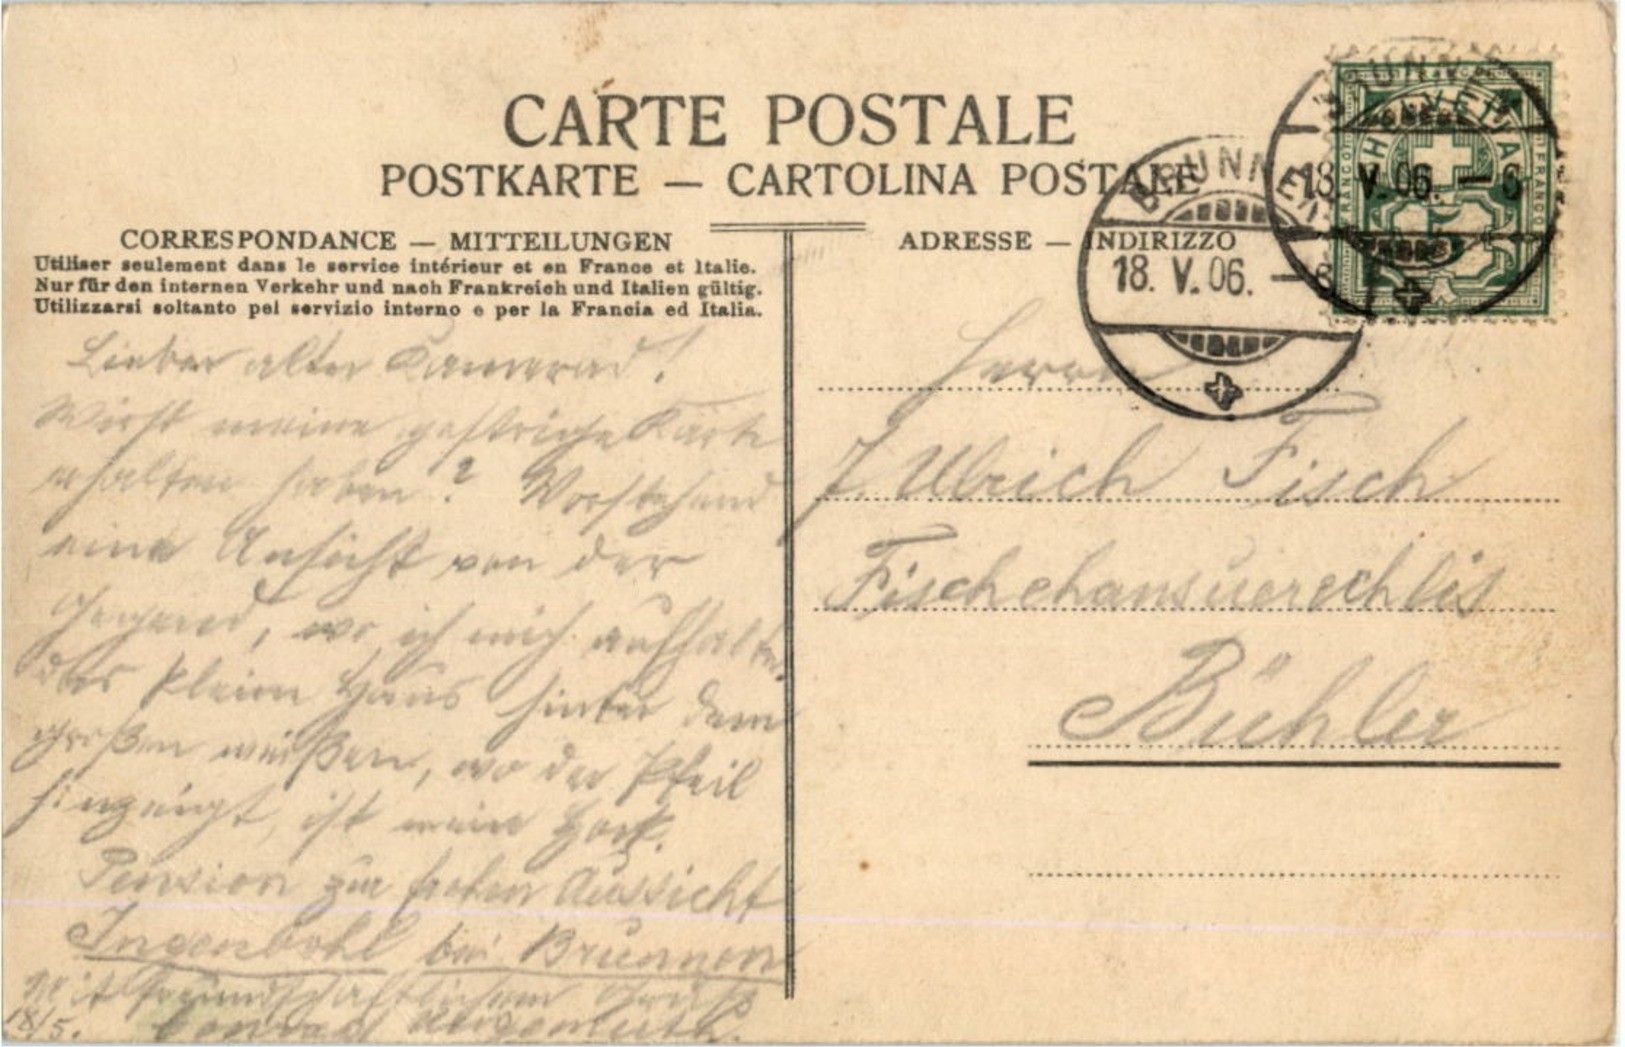 CARTE POSTALE
POSTKARTE — CARTOLINA POSTALE
CORRESPONDANCE — MITTEILUNGEN
Utiliser seulement dans le service intérieur et en France et Italie.
Nur für den internen Verkehr und nach Frankreich und Italien gültig.
Utilizzarsi soltanto pel servizio interno e per la Francia ed Italia.
Lieber alter Kamerad!
Wirst meine gestrige Karte
erhalten haben? Vorstehend
eine Ansicht von der
Gegend, wo ich mich aufhalte.
das kleine Haus hinter dem
großen weißen, wo der Pfeil
hinzeigt, ist mein
Pension zur frohen Aussicht
Ingenbohl bei Brunnen
Mit freundschaftlichem Gruß
18/5. Conrad
ADRESSE — INDIRIZZO
Herrn
J. Ulrich Fisch
Bühler
BRUNNEN
18. V. 06. — 6
BRUNNEN
18. V. 06. — 6
HELVETIA
FRANCO
FRANCO
5